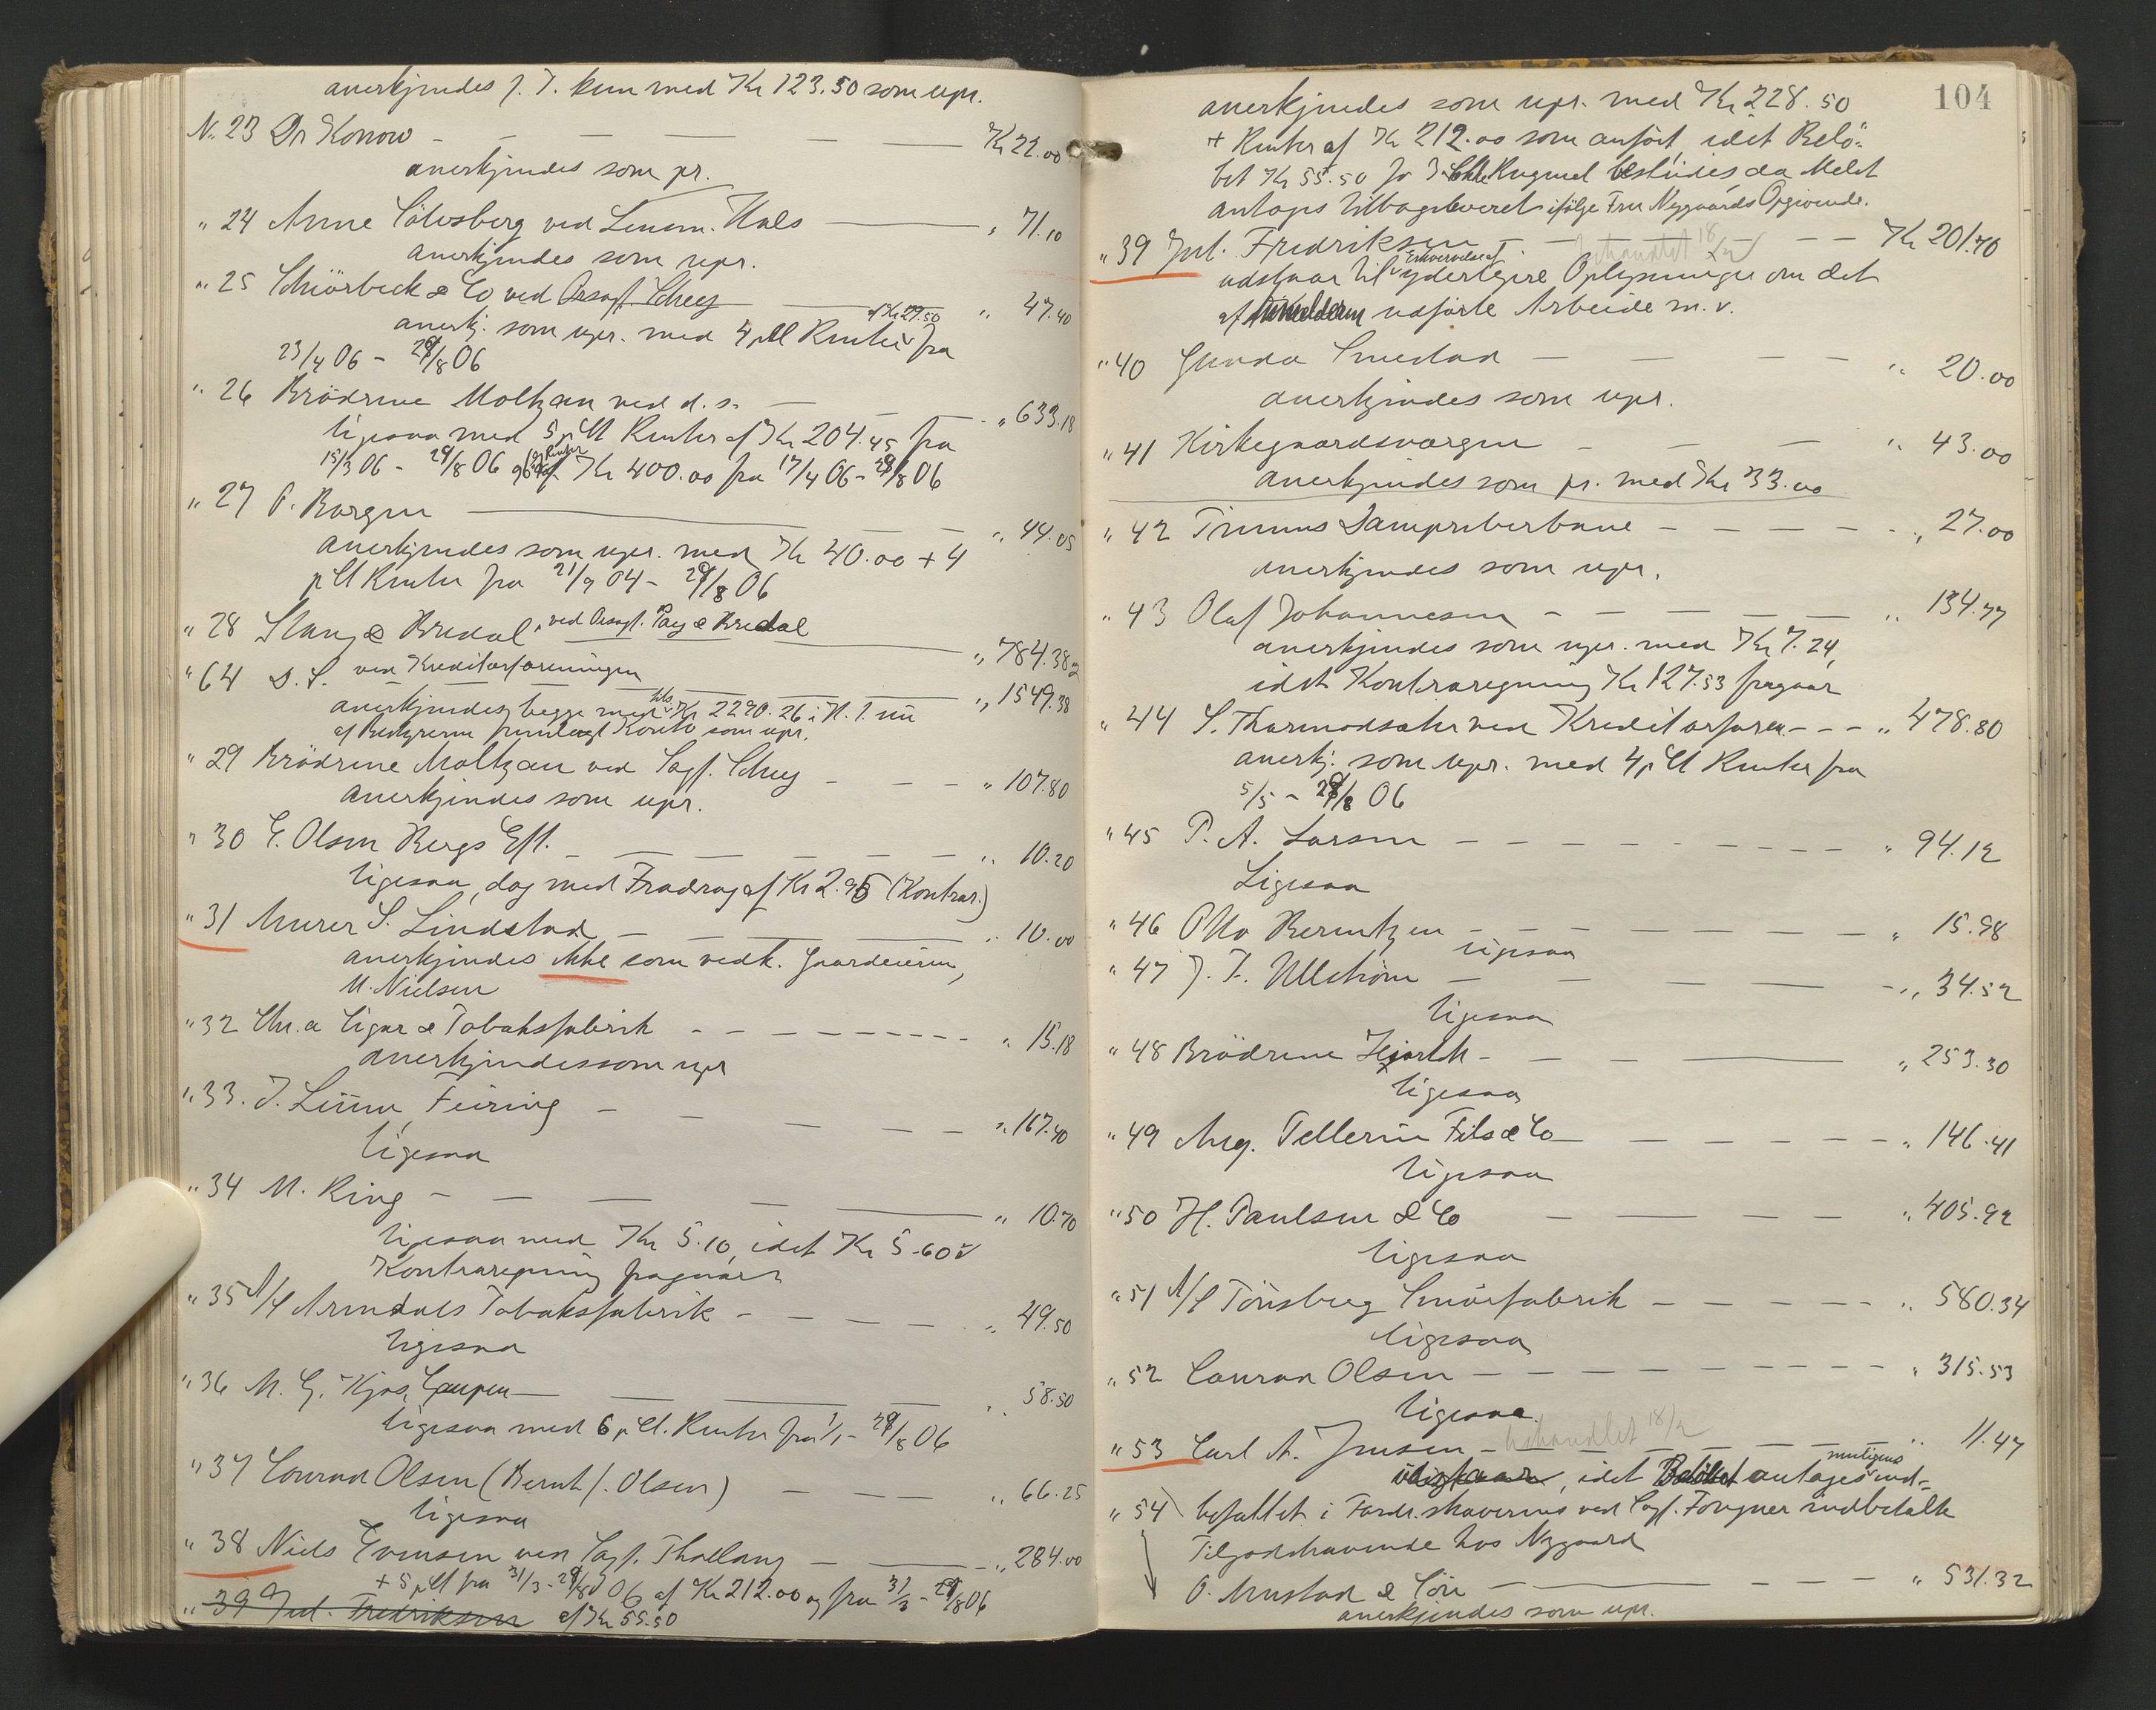 anerkjendes f. T. kun med Kr 123.50 som upr.
No. 23 Dr Konow - - - - - Kr 22.00
anerkjendes som pr.
" 24 Anne ved Lensm. Hals - " 71.10
anerkjendes som upr.
" 25 Schiörbeck & Co ved Orsagf. Scheey - " 47.40
anerkj. som upr. med 4 pCt Renter af Kr 27.50 fra
23/4 06 - 29/8 06
" 26 Brödrene Moltzau ved d. s. - - - " 633.18
ligesaa med 5 pCt Renter af Kr 204.45 fra
15/3 06 - 29/8 06 og Renter af Kr 400.00 fra 17/4 06 - 29/8 06
" 27 P. Borgen - - - " 44.05
anerkjendes som upr. med Kr 40.00 + 4
pCt Renter fra 21/9 04 - 29/8 06
" 28 Stang & Bredal, ved Orsagf. Paey & Bredal - " 784.38
" 64 D. S. ved Kreditorforeningen - " 1549.38
anerkjendes begge med tils. Kr 2290.26 i H. t. en
af Bestyreren fremlagt Konto som upr.
" 29 Brödrene Moltzau ved Sagf. Scheey - - - " 107.80
anerkjendes som upr.
" 30 E. Olsen Bergs Eft. - - - - - " 10.20
ligesaa, dog med Fradrag af Kr 2.95 (Kontrar.)
" 31 Murer S. Lindstad - - - " 10.00
anerkjendes ikke som vedk. Gaardeieren,
M. Nielsen
" 32 Chr.a Cigar & Tobaksfabrik - - - - " 15.18
anerkjendes som upr
" 33. J. Linn, Feiring - - - - - " 167.40
ligesaa
" 34 M. Ring - - - - " 10.70
ligesaa med Kr 5.10, idet Kr 5.60 i
Kontraregning fragaar
" 35 A/S Arendals Tobaksfabrik - - - - " 49.50
ligesaa
" 36 M. G. Kjos, - - - " 58.50
ligesaa med 6 pCt. Renter fra 1/1 - 29/8 06
" 37 Conrad Olsen (Bernt J. Olsen) - - - " 66.25
ligesaa
" 38 Niels Evensen ved Sagf. Thallaug - - - " 284.00
+ 5 pCt fra 31/3 - 29/8 06 af Kr 212.00 og fra 31/3 - 29/8 06
" 39 Jul. Fredriksen af Kr 55.50
104
anerkjendes som upr. med Kr 228.50
+ Renter af Kr 212.00 som anfört, idet Belö-
bet Kr 55.50 for 3 Rugmel bestrides, da Melet
antages tilbageleveret ifölge Fru Nygaards Opgivende.
" 39 Jul. Fredriksen - behandlet 18/2 - - Kr 201.70
udstaar til Erhvervelse af yderligere Oplysninger om det
af Anmelderen udförte Arbeide m. v.
" 40 Gunda Smestad - - - - " 20.00
anerkjendes som upr.
" 41 Kirkegaardsvœrgen - - - " 43.00
anerkjendes som pr. med Kr 33.00
" 42 Dampveverbane - - - - - " 27.00
anerkjendes som upr.
" 43 Olaf Johannesen - - - - - " 134.77
anerkjendes som upr. med Kr 7.24,
idet Kontraregning Kr 127.53 fragaar
" 44 S. Thormodsæter ved Kreditorforen. - - - " 478.80
anerkj. som upr. med 4 pCt Renter fra
5/5 - 29/8 06
" 45 P. A. Larsen - - - - - - " 94.12
Ligesaa
" 46 Otto Berntzen - - - - - " 15.98
ligesaa
" 47 J. F. Ullström - - - - " 34.52
ligesaa
" 48 Brödrene Hjorth - - - " 253.30
ligesaa
" 49 Aug. Pellerin Fils & Co - - - - " 146.41
ligesaa
" 50 H. Paulsen & Co - - - - " 405.92
ligesaa
" 51 A/S Tönsberg Smörfabrik - - - - - " 580.34
ligesaa
" 52 Conrad Olsen - - - - - - " 315.53
ligesaa
" 53 Carl A. Jensen - behandlet 18/2 - - - " 11.47
udstaar, idet Belöbet antages muligens ind-
" 54 befattet i Fordr.shaverens ved Sagf. Fougner indbetalte
Tilgodehavende hos Nygaard
O. Mustad & Sön - - - - " 531.32
anerkjendes som upr.